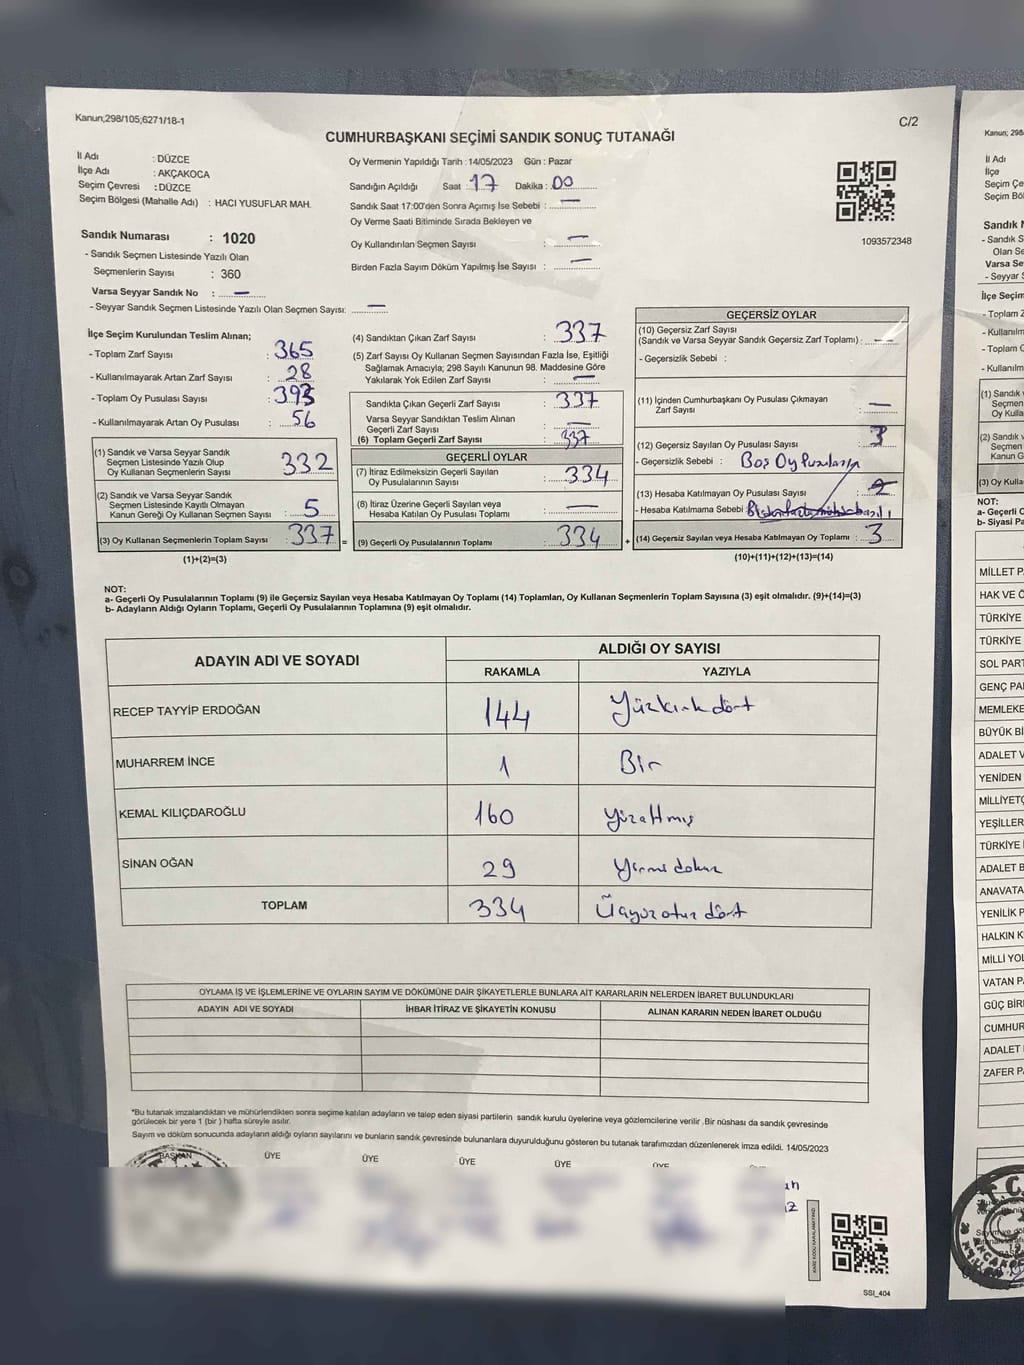 Kanun;298/105;6271/18-1
C/2
CUMHURBAŞKANI SEÇİMİ SANDIK SONUÇ TUTANAĞI
İl Adı : DÜZCE
İlçe Adı : AKÇAKOCA
Seçim Çevresi : DÜZCE
Seçim Bölgesi (Mahalle Adı) : HACI YUSUFLAR MAH.
Oy Vermenin Yapıldığı Tarih : 14/05/2023 Gün : Pazar
Sandığın Açıldığı Saat : 17 Dakika : 00
Sandık Saat 17:00'den Sonra Açımış İse Sebebi : —
Oy Verme Saati Bitiminde Sırada Bekleyen ve
Oy Kullandırılan Seçmen Sayısı : —
Birden Fazla Sayım Döküm Yapılmış İse Sayısı : —
1093572348
Sandık Numarası : 1020
- Sandık Seçmen Listesinde Yazılı Olan
Seçmenlerin Sayısı : 360
Varsa Seyyar Sandık No : —
- Seyyar Sandık Seçmen Listesinde Yazılı Olan Seçmen Sayısı: —
İlçe Seçim Kurulundan Teslim Alınan;
- Toplam Zarf Sayısı : 365
- Kullanılmayarak Artan Zarf Sayısı : 28
- Toplam Oy Pusulası Sayısı : 393
- Kullanılmayarak Artan Oy Pusulası : 56
(1) Sandık ve Varsa Seyyar Sandık
Seçmen Listesinde Yazılı Olup
Oy Kullanan Seçmenlerin Sayısı : 332
(2) Sandık ve Varsa Seyyar Sandık
Seçmen Listesinde Kayıtlı Olmayan
Kanun Gereği Oy Kullanan Seçmen Sayısı : 5
(3) Oy Kullanan Seçmenlerin Toplam Sayısı : 337 =
(1)+(2)=(3)
(4) Sandıktan Çıkan Zarf Sayısı : 337
(5) Zarf Sayısı Oy Kullanan Seçmen Sayısından Fazla İse, Eşitliği
Sağlamak Amacıyla; 298 Sayılı Kanunun 98. Maddesine Göre
Yakılarak Yok Edilen Zarf Sayısı : —
Sandıkta Çıkan Geçerli Zarf Sayısı : 337
Varsa Seyyar Sandıktan Teslim Alınan
Geçerli Zarf Sayısı : —
(6) Toplam Geçerli Zarf Sayısı : 337
GEÇERLİ OYLAR
(7) İtiraz Edilmeksizin Geçerli Sayılan
Oy Pusulalarının Sayısı : 334
(8) İtiraz Üzerine Geçerli Sayılan veya
Hesaba Katılan Oy Pusulası Toplamı : —
(9) Geçerli Oy Pusulalarının Toplamı : 334 +
GEÇERSİZ OYLAR
(10) Geçersiz Zarf Sayısı
(Sandık ve Varsa Seyyar Sandık Geçersiz Zarf Toplamı) : —
- Geçersizlik Sebebi :
(11) İçinden Cumhurbaşkanı Oy Pusulası Çıkmayan
Zarf Sayısı : —
(12) Geçersiz Sayılan Oy Pusulası Sayısı : 3
- Geçersizlik Sebebi : Boş Oy Pusulasıyla
(13) Hesaba Katılmayan Oy Pusulası Sayısı :
- Hesaba Katılmama Sebebi :
(14) Geçersiz Sayılan veya Hesaba Katılmayan Oy Toplamı : 3
(10)+(11)+(12)+(13)=(14)
NOT:
a- Geçerli Oy Pusulalarının Toplamı (9) ile Geçersiz Sayılan veya Hesaba Katılmayan Oy Toplamı (14) Toplamları, Oy Kullanan Seçmenlerin Toplam Sayısına (3) eşit olmalıdır. (9)+(14)=(3)
b- Adayların Aldığı Oyların Toplamı, Geçerli Oy Pusulalarının Toplamına (9) eşit olmalıdır.
ADAYIN ADI VE SOYADI
ALDIĞI OY SAYISI
RAKAMLA YAZIYLA
RECEP TAYYİP ERDOĞAN 144 Yüzkırkdört
MUHARREM İNCE 1 Bir
KEMAL KILIÇDAROĞLU 160 Yüzaltmış
SİNAN OĞAN 29 Yirmi dokuz
TOPLAM 334 Üçyüz otuz dört
OYLAMA İŞ VE İŞLEMLERİNE VE OYLARIN SAYIM VE DÖKÜMÜNE DAİR ŞİKAYETLERLE BUNLARA AİT KARARLARIN NELERDEN İBARET BULUNDUKLARI
ADAYIN ADI VE SOYADI İHBAR İTİRAZ VE ŞİKAYETİN KONUSU ALINAN KARARIN NEDEN İBARET OLDUĞU
*Bu tutanak imzalandıktan ve mühürlendikten sonra seçime katılan adayların ve talep eden siyasi partilerin sandık kurulu üyelerine veya gözlemcilerine verilir .Bir nüshası da sandık çevresinde
görülecek bir yere 1 (bir ) hafta süreyle asılır.
Sayım ve döküm sonucunda adayların aldığı oyların sayılarını ve bunların sandık çevresinde bulunanlara duyurulduğunu gösteren bu tutanak tarafımızdan düzenlenerek imza edildi. 14/05/2023
BAŞKAN ÜYE ÜYE ÜYE ÜYE
SSI_404
Kanun; 298
İl Adı
İlçe
Seçim Çe
Seçim Böl
Sandık N
- Sandık S
Olan Se
Varsa Se
- Seyyar S
İlçe Seçim
- Toplam Z
- Kullanılm
- Toplam O
- Kullanılm
(1) Sandık
Seçmen
Oy Kulla
(2) Sandık
Seçmen
Kanun G
(3) Oy Kulla
NOT:
a- Geçerli O
b- Siyasi Pa
MİLLET P
HAK VE Ö
TÜRKİYE
TÜRKİYE
SOL PART
GENÇ PA
MEMLEKE
BÜYÜK Bİ
ADALET V
YENİDEN
MİLLİYETÇ
YEŞİLLER
TÜRKİYE
ADALET B
ANAVATA
YENİLİK P
HALKIN K
MİLLİ YOL
VATAN P
GÜÇ BİR
CUMHUR
ADALET
ZAFER P